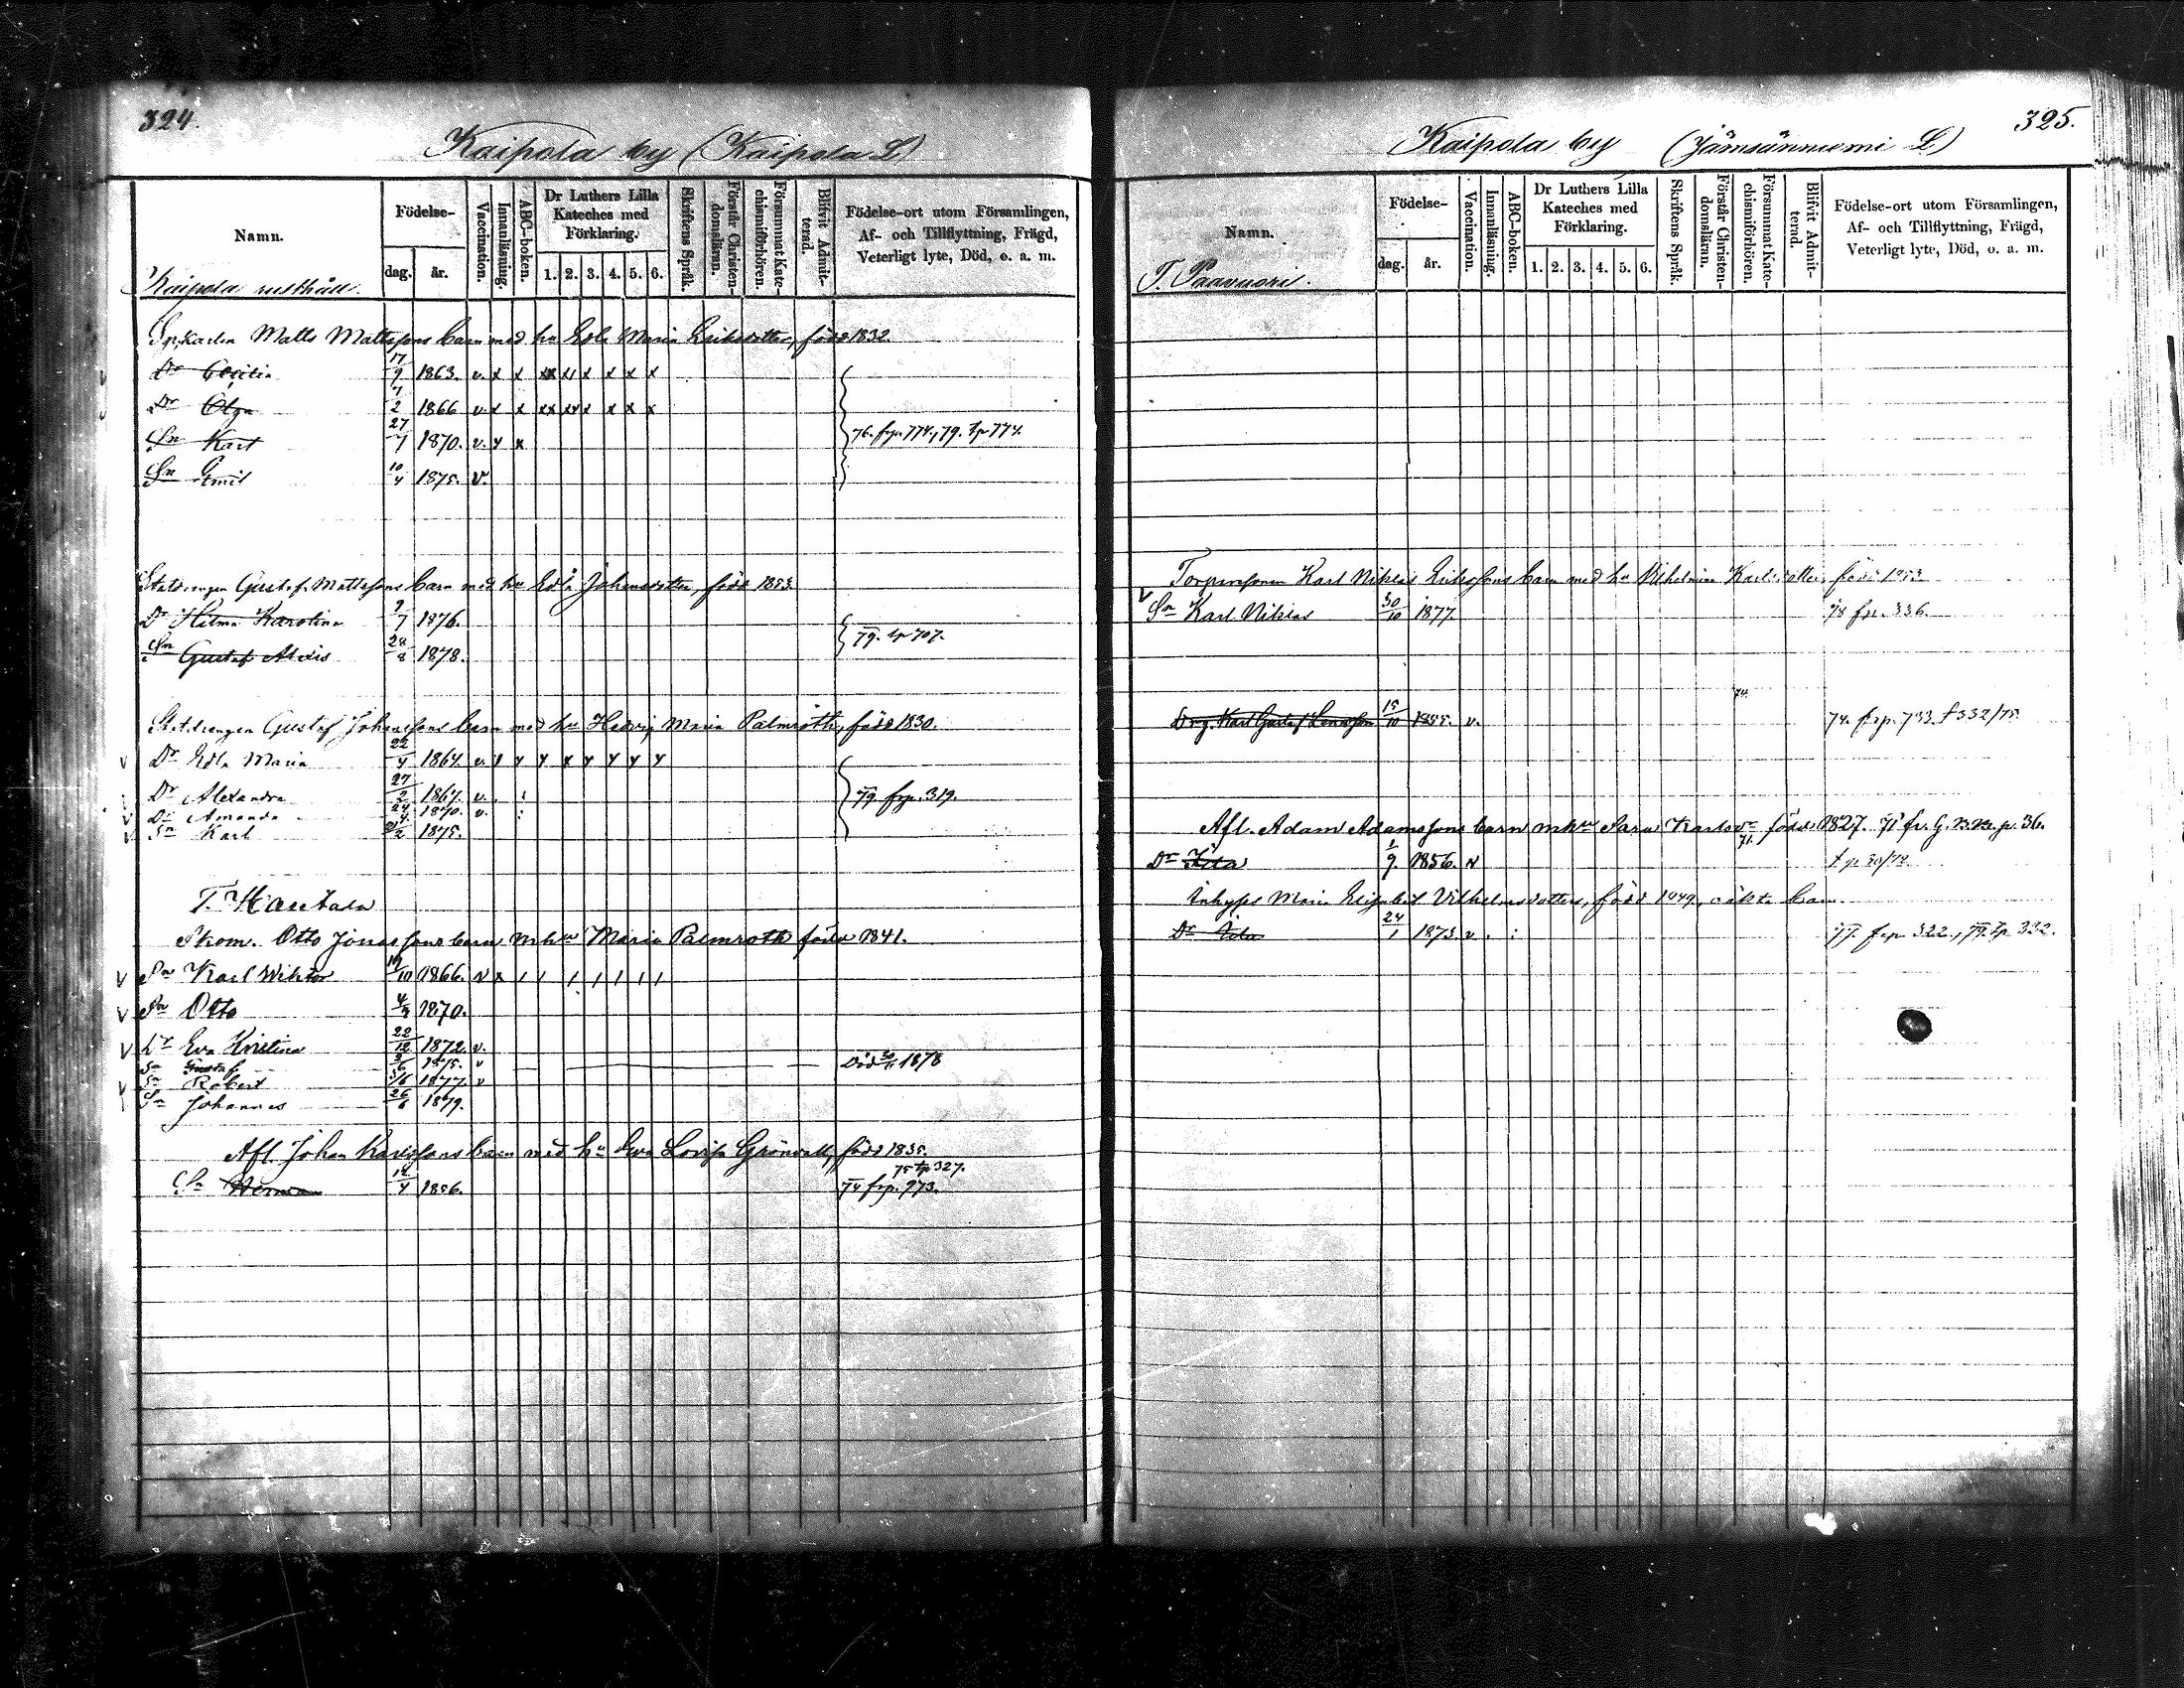 324.
Kaipola by (Kaipola L)
Namn.
Födelse-
dag.
år.
Vaccination.
Innanläsning.
ABC-boken.
Dr Luthers Lilla
Kateches med
Förklaring.
1. 2. 3. 4. 5. 6.
Skriftens Språk.
Förstår Christen-
domsläran.
Försummat Kate-
chismiförhören.
Blifvit Admit-
terad.
Födelse-ort utom Församlingen,
Af- och Tillflyttning, Frägd,
Veterligt lyte, Död, o. a. m.
Kaipola rusthåll.
Matts Mattssons barn med hu Edla Maria Eriksdotter, född 1832.
Dr Cecilia 17/9 1863. v. x x xx x x x x x
Dr Olga 7/2 1866 v. x x xx xx x x x x
Sn Karl 27/7 1870. v. x x 76. frp. 774, 79. tp 774.
Sn Emil 10/4 1875. v.
Statdrengen Gustaf Mattssons barn med hu Edla Johansdotter, född 1853.
Dr Hilma Karolina 9/7 1876.
79. tp 707.
Sn Gustaf Alexis 28/8 1878.
Statdrengen Gustaf Johanssons barn med hu Hedvig Maria Palmroth, född 1830.
Dr Edla Maria 22/4 1864. v.
Dr Alexandra 27/2 1867. v. 79 frp. 319.
Dr Amanda 24/4 1870. v.
Sn Karl 1875.
T. Hautala
Otto Jonassons barn m hu Maria Palmroth född 1841.
Sn Karl Wiktor 19/10 1866. v x
Sn Otto 4/9 1870.
Dr Eva Kristina 22/12 1872. v.
Sn Gustaf 1875. v Död 1878
Sn Robert 3/6 1877. v
Sn Johannes 26/6 1879.
Afl. Johan Karlssons barn med hu Eva Lovisa Grönvall, född 1835.
75 tp 327.
Sn Herman 14/4 1856. 74 frp. 773.
325.
Kaipola by (Jämsänniemi L)
Namn.
Födelse-
dag.
år.
Vaccination.
Innanläsning.
ABC-boken.
Dr Luthers Lilla
Kateches med
Förklaring.
1. 2. 3. 4. 5. 6.
Skriftens Språk.
Förstår Christen-
domsläran.
Försummat Kate-
chismiförhören.
Blifvit Admit-
terad.
Födelse-ort utom Församlingen,
Af- och Tillflyttning, Frägd,
Veterligt lyte, Död, o. a. m.
T. Paavuori.
Karl Niklas Erikssons barn med hu Vilhelmina Karlsdotter, född 1853
Sn Karl Niklas 30/10 1877. 78 frp. 336.
74.
Drg. Karl Gustaf 15/10 1855. v. 74. frp. 733. t 332/75.
Afl. Adam Adamssons barn m hu Sara Karlsdr född 1827. 71 fr. G. B. p. 36.
71.
Dr 1/9 1856. v
Inhyses Maria Elisabet Vilhelmsdotters, född 1849, oäkta barn.
Dr 24/1 1873. v 77. frp 322., 79. tp 332.